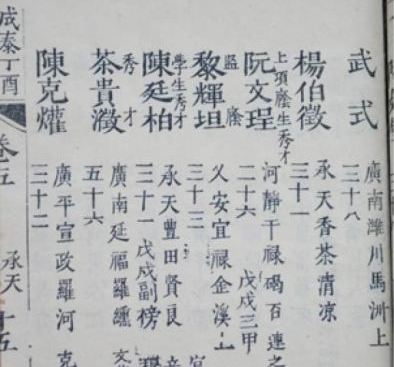 武式
廣南濰川馬洲上
二十八
楊伯徵
承天香茶清凉
三十一
上項廕生秀才
阮文珵
河靜干禄碣百連之
二十六 戊戌三甲
監廕
黎輝坦
乂安宜禄金溪上
三十三
學生秀才
陳廷柏
承天豊田賢良
三十一 戊戌副榜
秀才
茶貴瀓
廣南延福羅纏
五十六
陳克爟
廣平宣政羅河 克
三十二
成泰丁酉 卷五 承天 十五